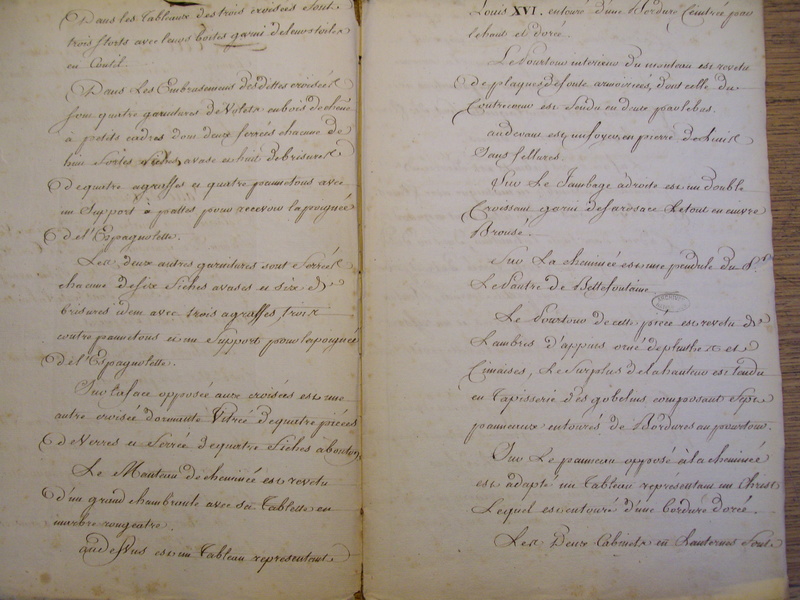 Dans les Tableaux des trois croisées sont
trois stors avec leurs boites garni de leurs toiles
en Coutil.
Dans Les Embrasemens des dittes croisées
sont quatre garnitures de Volets en bois de chêne
à petits cadres dont deux ferrées chacune de
huit fortes fiches à vase et huit de brisures
de quatre agraffes et quatre pannetons avec
un Support à pattes pour recevoir la poignée
de l'Espagnolette.
Les deux autres garnitures sont ferrées
chacune de six fiches à vases et six de
brisures idem avec trois agraffes, trois
contre pannetons et un Support pour la poignée
de l'Espagnolette.
Sur la face opposée aux croisées est une
autre croisée dormante Vitrée de quatre pièces
de Verres et ferrée de quatre fiches à bouton
Le Manteau de cheminée est revetu
d'un grand chambranle avec sa Tablette en
marbre rougeatre.
au dessus est un Tableau representant
Louis XVI. entouré d'une Bordure Ceintrée par
le haut et dorée.
Le Pourtour interieur du manteau est revetu
de plaques de fonte armoiriées, dont celle du
Contrecœur est fendu en deux par le bas.
au devant est un foyer en pierre de liais
Sans fellures.
Sur Le Jambage à droite est un double
Croissant garni de sa rosace Le tout en cuivre
Bronsé.
Sur La cheminée est une pendule du Sr.
Le Pautre de Bellefontaine.
Le Pourtour de cette pièce est revetu de
Lambris d'appuis orné de plinthes et
Cimaises, Le Surplus de la hauteur est tendu
en Tapisserie des gobelins, composant Sept
panneaux entourés de Bordures au pourtour.
Sur Le panneau opposé à la cheminée
est adapté un Tableau representant un Christ
Lequel est entouré d'une bordure dorée.
Les Deux Cabinets en Lanternes sont